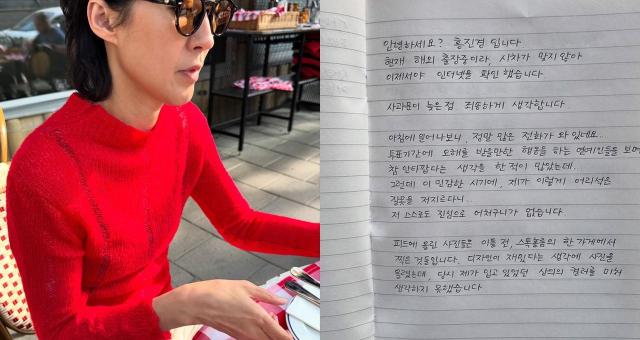 안녕하세요? 홍진경 입니다.
현재 해외 출장중이라, 시차가 맞지 않아
이제서야 인터넷을 확인 했습니다.
사과문이 늦은점 죄송하게 생각합니다
아침에 일어나보니, 정말 많은 전화가 와 있네요..
투표기간에 오해를 받을만한 행동을 하는 연예인들을 보며
참 안타깝다는 생각을 한 적이 많았는데..
그런데 이 민감한 시기에, 제가 이렇게 어리석은
잘못을 저지르다니..
저 스스로도 진심으로 어처구니가 없습니다.
피드에 올린 사진들은 이틀 전, 스톡홀름의 한 가게에서
찍은 것들입니다. 디자인이 재밌다는 생각에 사진을
올렸는데, 당시 제가 입고 있었던 상의의 컬러를 미처
생각하지 못했습니다